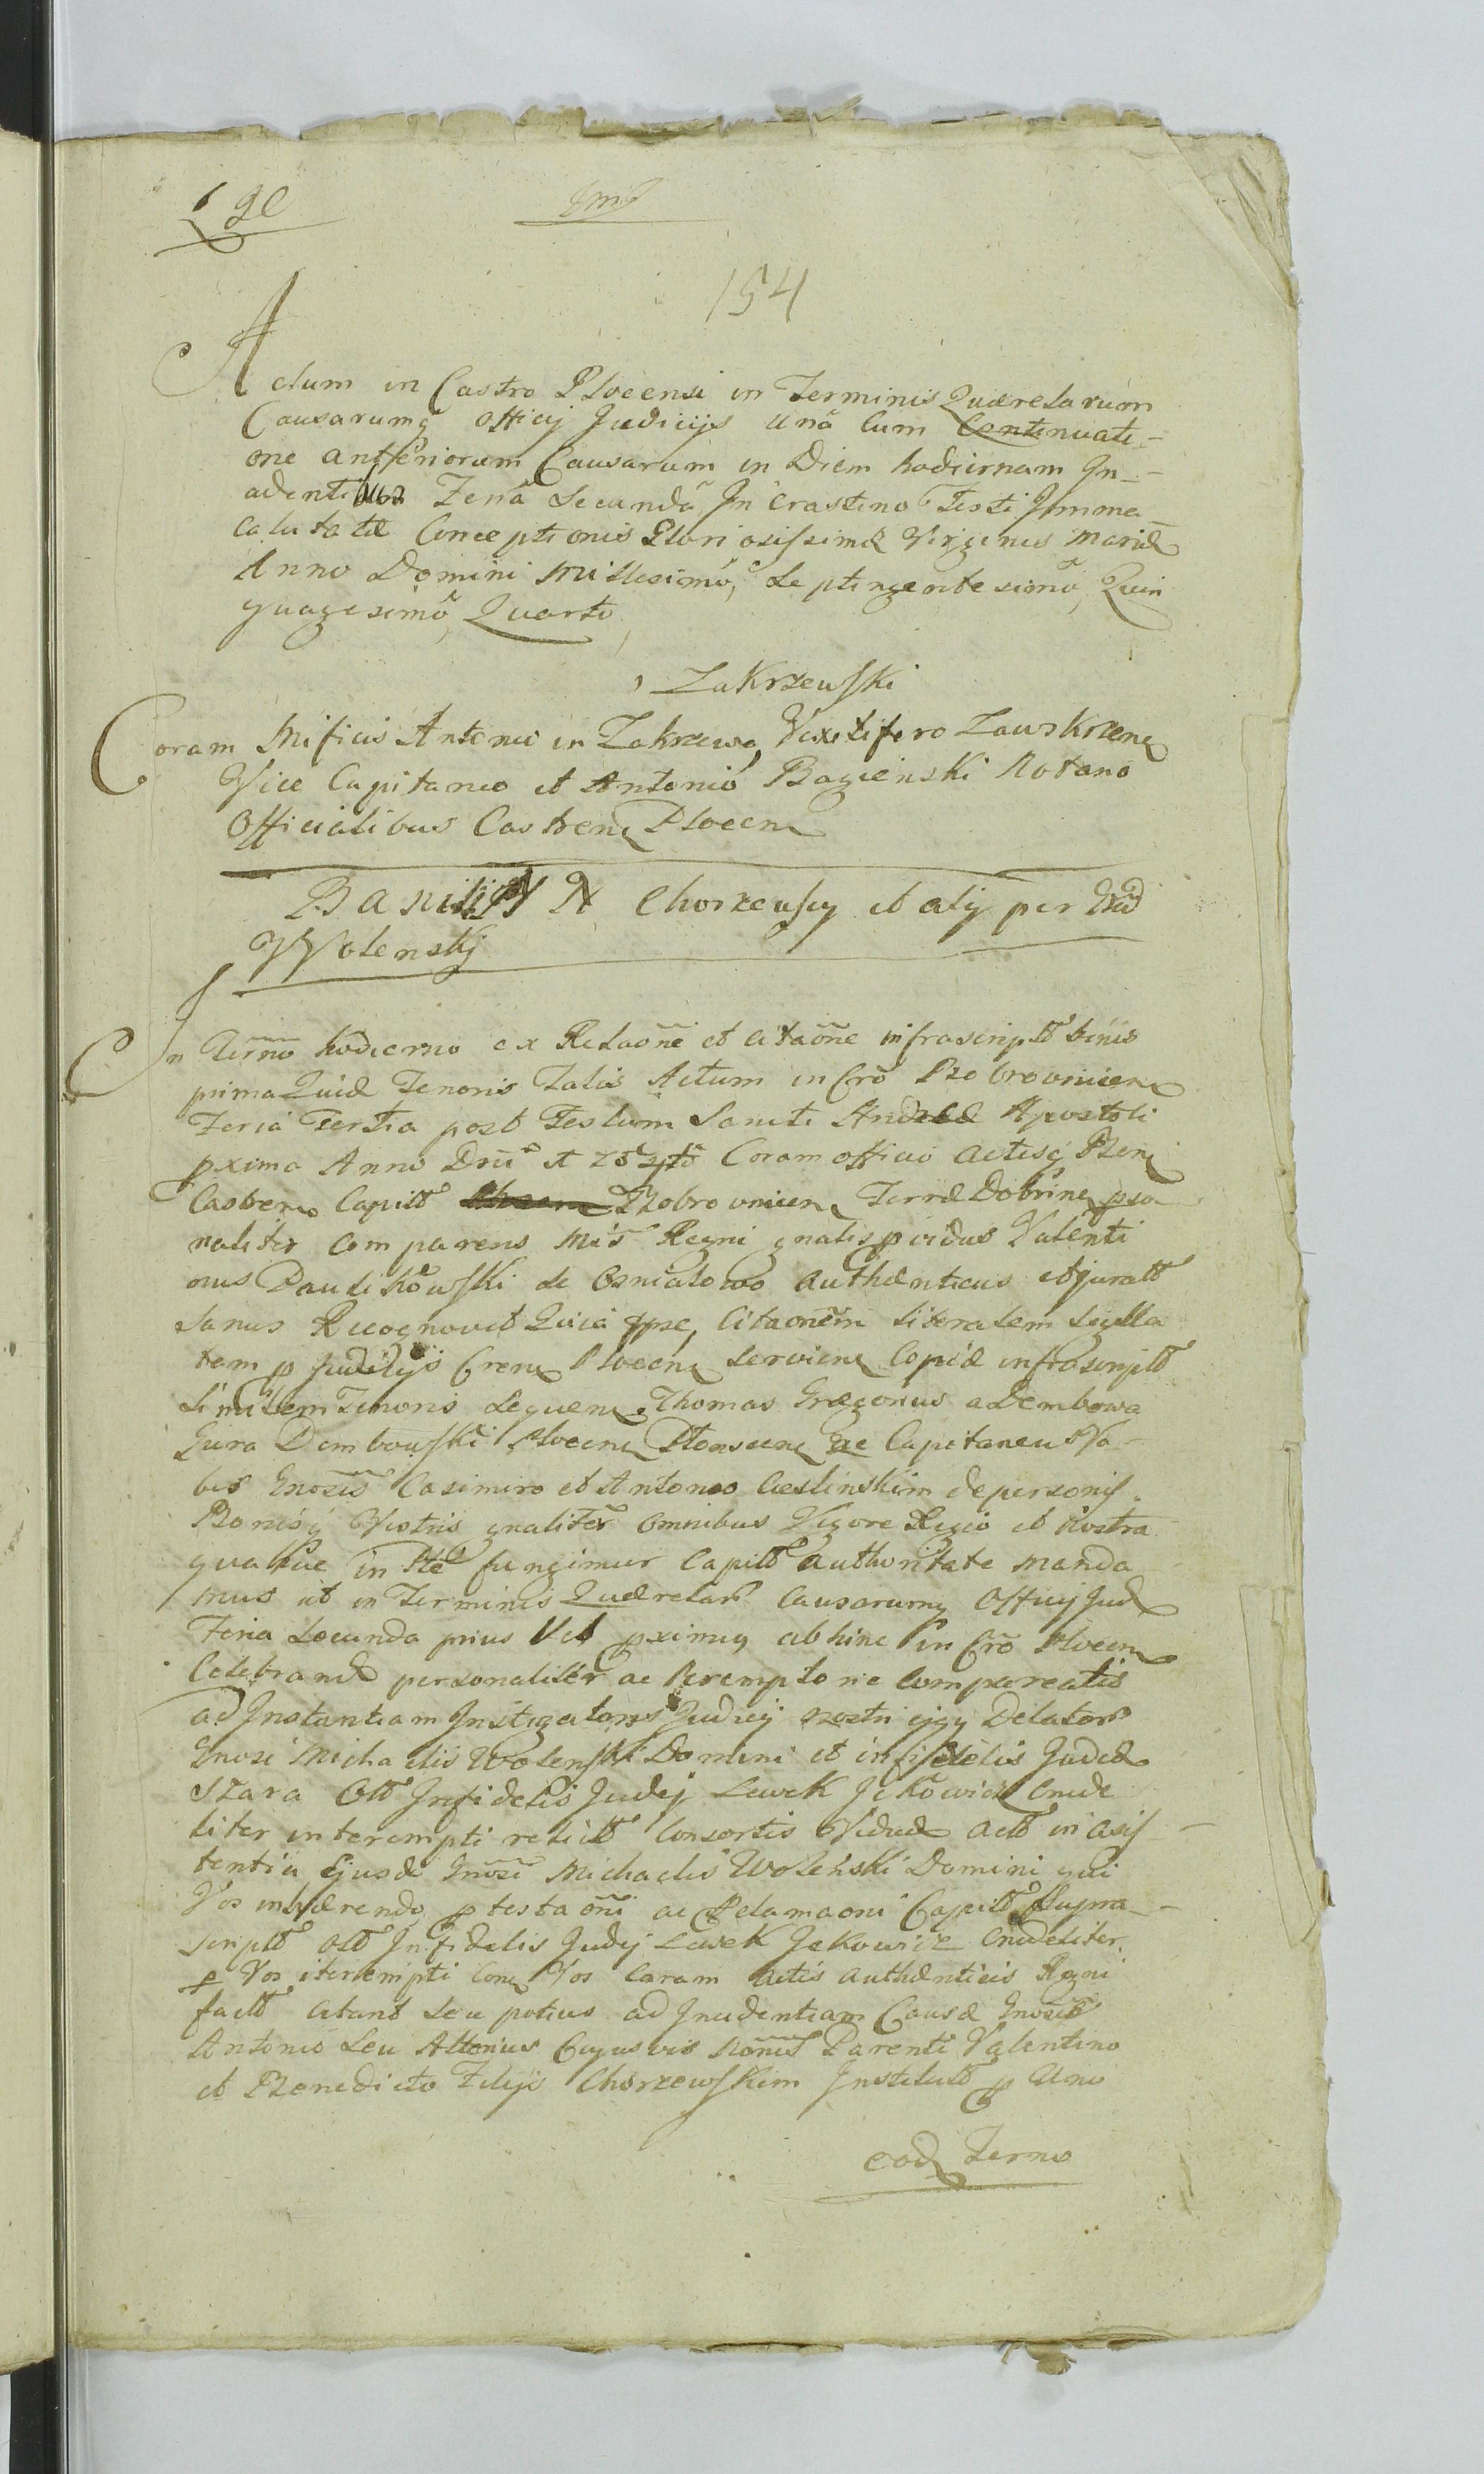 154
Actum in Castro Plocensi in Terminis Quærelarum
Causarumq Officij Judicijs unã cum Continuati-
one anteriorum Causarum in Diem hodiernam In-
adenti Feriã Secundã In Crastino Festi Imma
culatæ Conceptionis Gloriosissimæ Virginis Mariæ
Anno Domini Millesimõ, Septingentesimõ, Quin
quagesimõ, Quarto,
Zakrzewski
Coram Mificis Antonio in Zakrzewo, Vexilifero Zawskrzen
Vice Capitaneo et Antonio Bagienski Notario
Officialibus Castren Plocen
Banitio N Chorzewscy et alij per
Wolenskj
In Termño hodierno ex Relaoñe et citaoñe infrascriptt binis
prima Quid Tenoris Talis Actum in Crõ Bobrovnicen
Feria Tertia post Festum Sancti Andreæ Apostoli
pxima Anno Dñi Coram officio actisq Pñ
Castren Capitt Bobrovnicen Terræ Dobrinen pso
naliter comparens Mis Regni gnalis pvidus Valenti
nus de Osnialowo authenticus et juratt
Sanus Recognovit Quia ipse, Citaonem literalem sigilla
tem p Judicijs Cren Plocen Servien Copiæ infrascriptt
Similem Tenoris Sequen Thomas Gregorius a Dembowa
Gura Dembowski Plocen Plonscen ac Capitaneus Vo-
bis Gnosis Casimiro et Antonio Cieslinskim de personis
Bonisq Vestris gnaliter omnibus Vigore Regio et Nostra
qua hue in Pte fungimur Capitt authoritate manda
mus ut in Terminis Quærelar Causarumq Officij Jud
Feria Secunda prius Vel pximiq abhinc in Crõ Plocen
Celebrand personaliter ac Peremptorie Compareatis
ad Instantiam Instigatoris Judicij nostri ejqq Delator
Gnosi Michaelis Wolenski Domini et infidelis Judæ
Stara Ott Infidelis Judej Lewek Jckowicz Crude
liter interempti relictt Consortis Viduæ actt in assis-
tentia Ejusd Gnosi Michaelis Wolenski Domini qui
Vos inhærendo ptestaoñi ac Relamaoni Capitt Supra-
scriptt Ott Infidelis Judej Lewek Jckowicz Crudeliter
p Vos iterempti Con Vos Coram actis authenticis Regni
factt citant Seu potius ad Incidentiam Causæ Gnosis
Antonio Seu Alterius Cujusvis Noñis Parenti Valentino
et Benedicto Filijs Chorzewskim Institutt p Uno
eod Termo